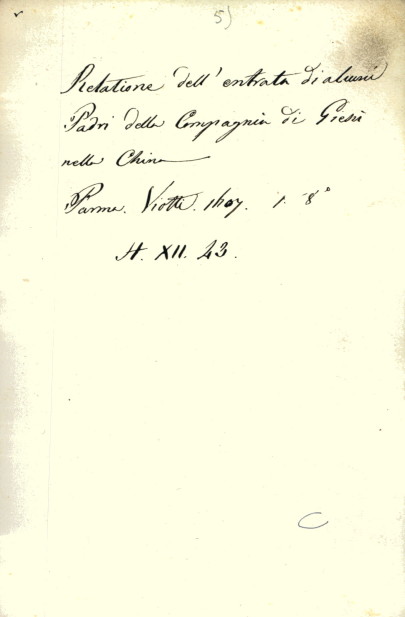 5)
Relatione dell' entrata di alcuni
Padri della Compagnia di Giesù
nella China
Parma. Viotti. 1607. 1. 8°
H. XII. 43.
C